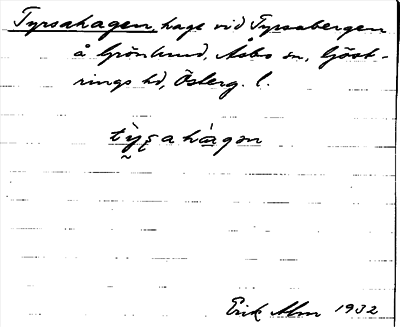 Tyrsahagen, hage vid Tyrsabergen
å Grönlund, Åsbo sn, Göst-
rings hd, Österg. l.
Erik Alm 1932